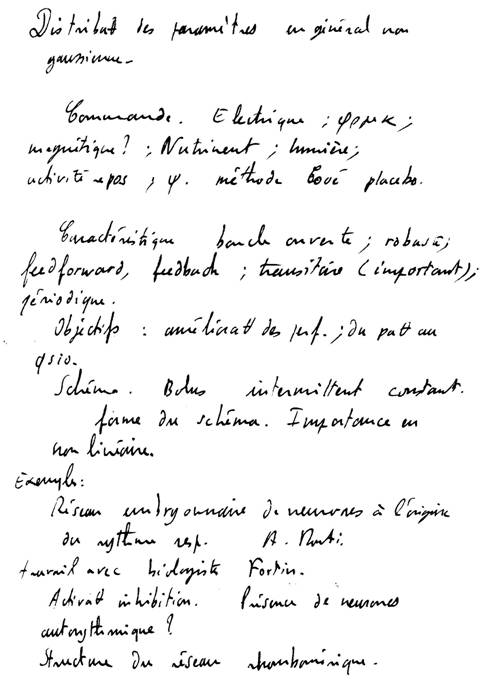 Distribat° des paramètres en général non
gaussienne.
Commande. Electrique ; φρμκ ;
magnétique? ; Nutriment ; lumière ;
activité repos ; ψ. méthode Coué placebo.
Caractéristique boucle ouverte ; robuste ;
feedforward, feedback ; transitoire (important) ;
périodique.
Objectifs : améliorat° des perf. ; du path au
φsio.
Schéma. Bolus intermittent constant.
forme du schéma. Importance en
non linéaire.
Exemples :
Réseau embryonnaire de neurones à l'origine
du rythme resp. A.
travail avec biologiste Fortin.
Activat° inhibition. Présence de neurones
autorythmique ?
Structure du réseau rhombomérique.